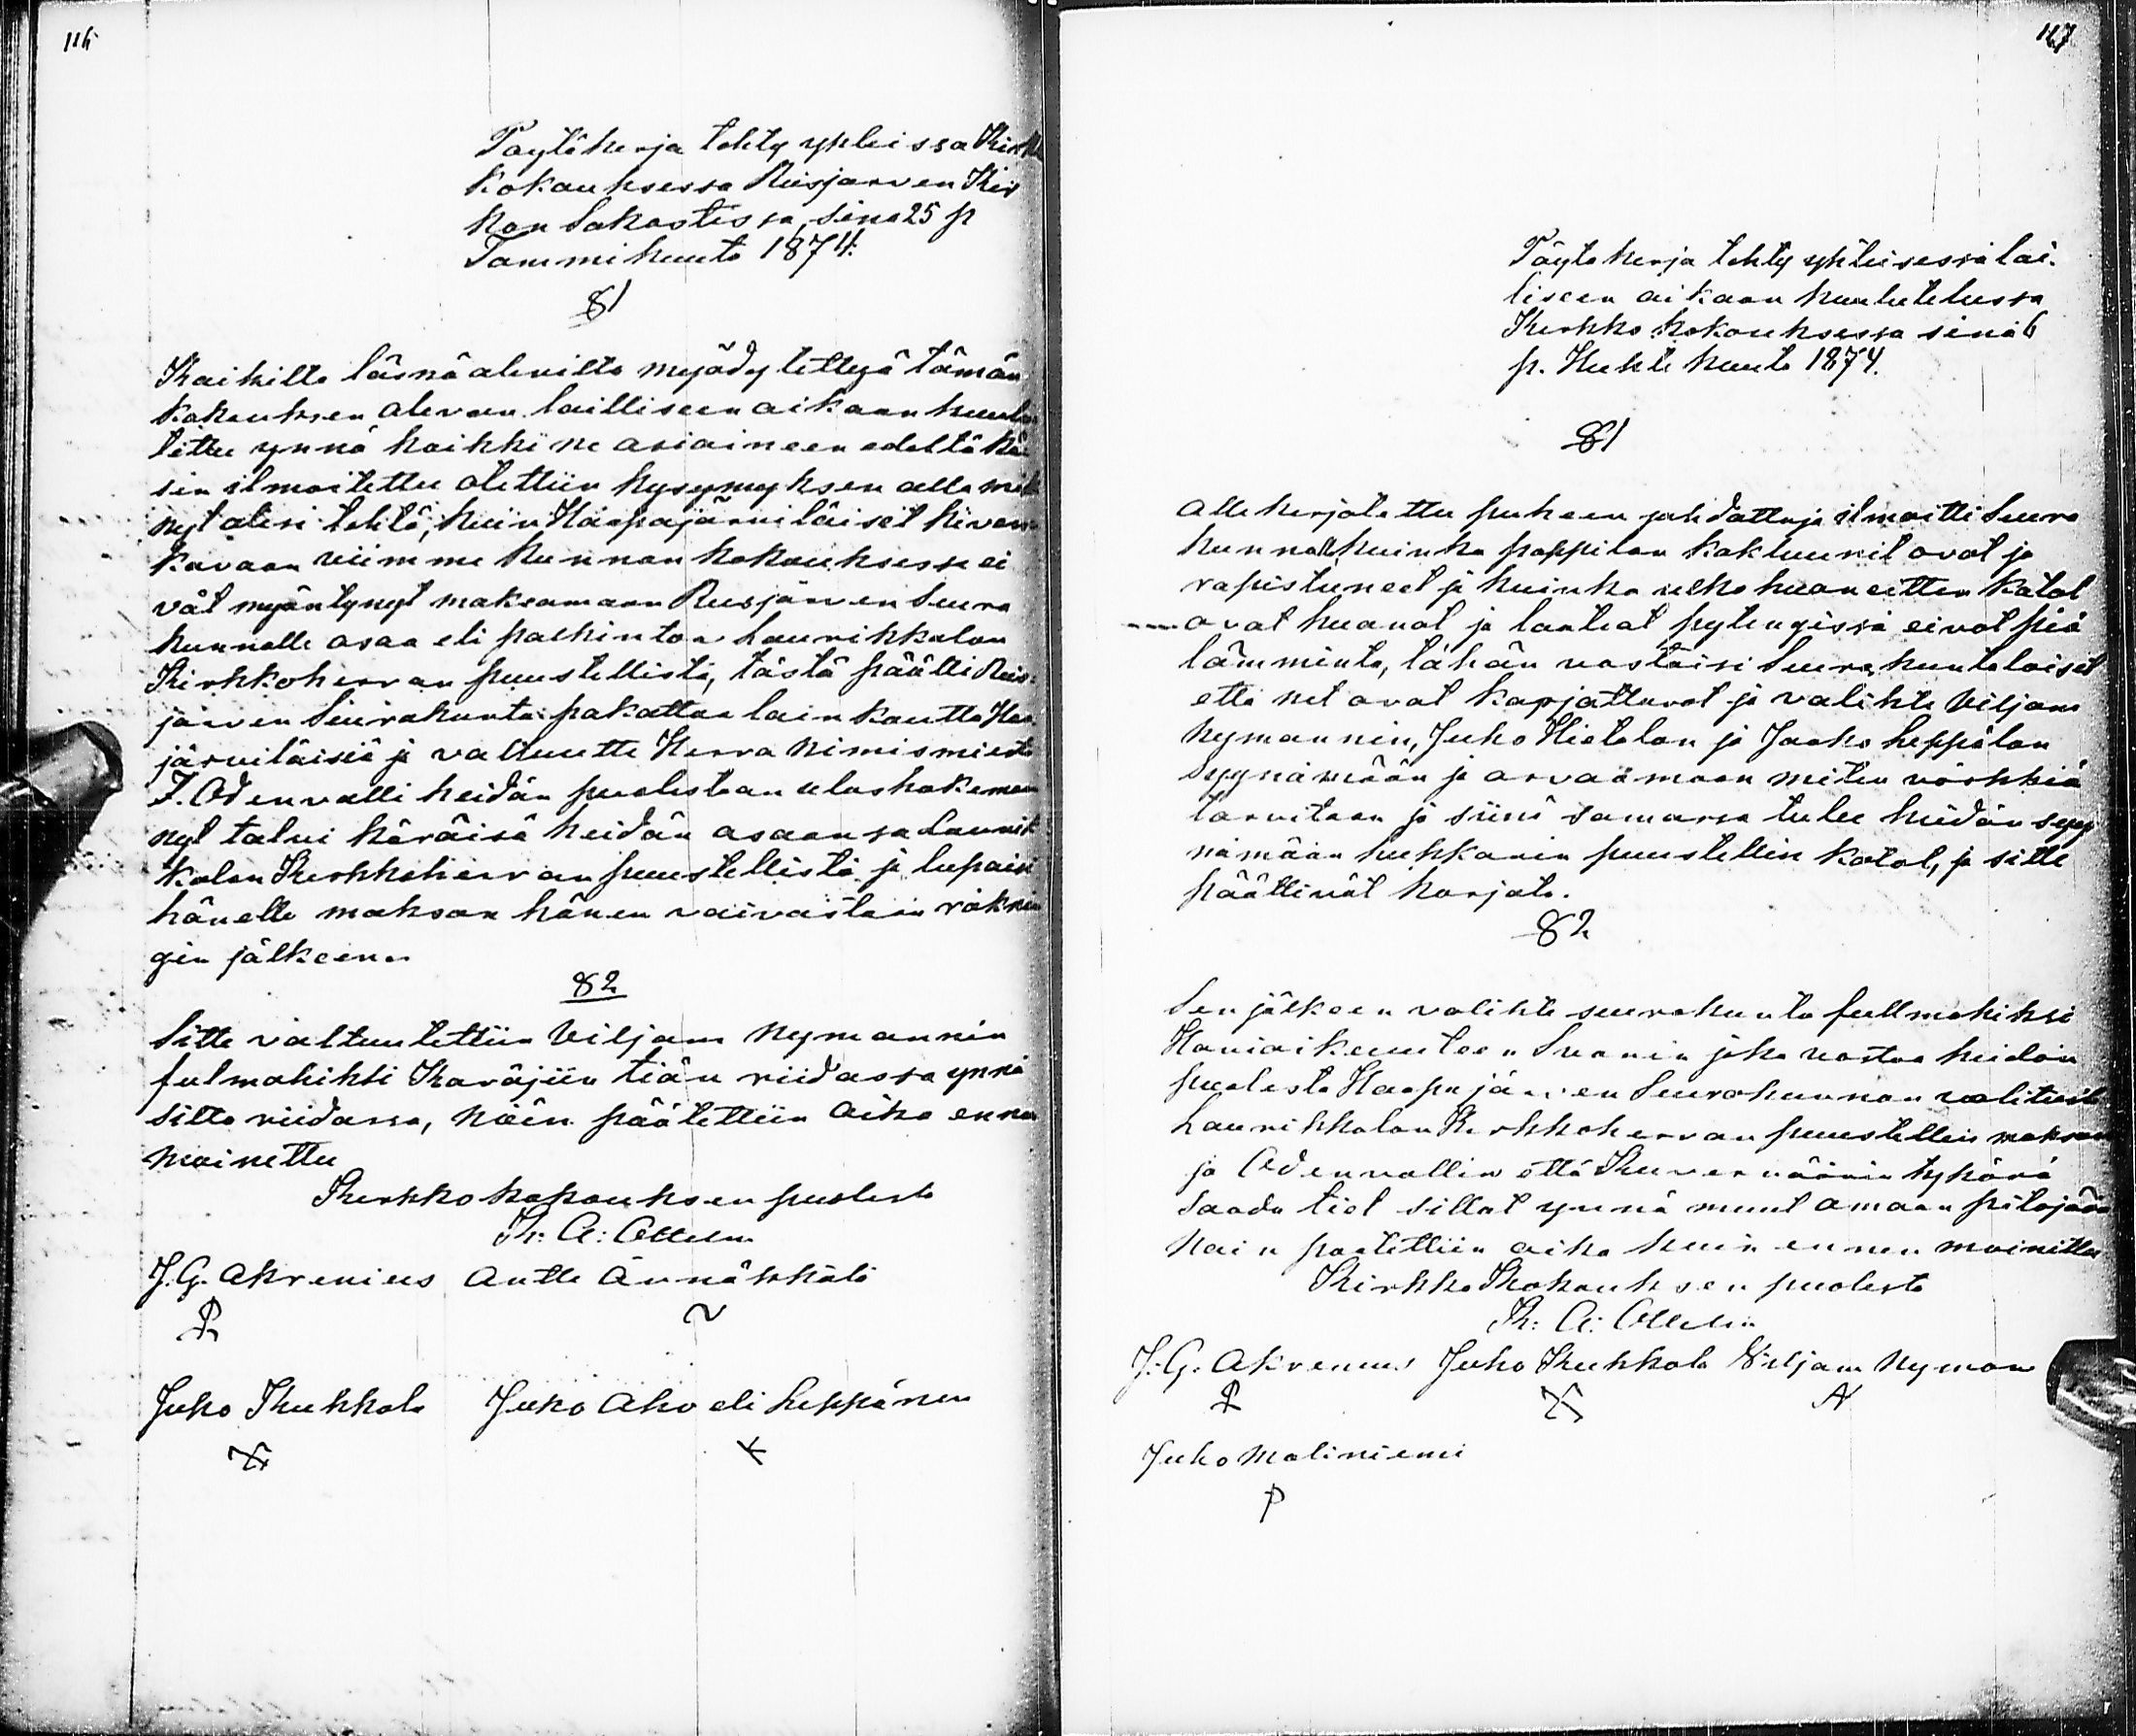 116
Paytäkirja tehty ykleissa Kirkko
Kokouksessa Reisjarven Kir
kon Sakastissa, sinä 25 p
Tammikuuta 1874.
§1
Kaikilta läsnäolevilta myödytettyä tämän
Kokouksen olevan lailliseen aikaan kuulu
tettu ynnä kaikki ne asiaineen edeltä kä
sin ilmoitettu otettiin kysymyksen alla mitä
nyt olisi tehtä, kuin Haapajärviläiset
kovaan viimme kunnan kokouksessa ei
vät myöntynyt maksamaan Reisjärven Seura
kunnalle osaa eli palkintoa Laurikkalan
Kirkkoherran puustellista, tästä päätti Reis
järven Seurakunta pakottaa lain kautta Haa
järviläisiä ja valtuutta Herra Nimismiestä
F. Odenvalli heidän puolestaan uloshakemaan
nyt talvi käräisä heidän osaansa Laurik
kalan Kirkkoherran puustellista ja lupaisi
hänelle maksaa hänen vaivastain räknin
gin jälkeen.
§2
Sitte valtuutettiin Viljam Nymannin
fulmahiksi Käräjiin tiän riidassa ynnä
silta riidassa, näin päätettiin aika ennen
mainettu
Kirkko kokouksen puolesta
K: A: Ottelin
J. G. Akrenius Antti Ännäkkälä
Juho Kukkola Juho Aho eli Leppänen
117
Päytäkirja tehty yhteisessä lai
liseen aikaan kuulutelussa
Kirkko kokouksessa sinä 6
p. Huhti kuuta 1874.
§1
Alle kirjotettu puheen johdattaja ilmoitti Seura
kunnall kuinka pappilan kakluunit ovat ja
rapistuneet ja kuinka ulko huoneitten katot
ovat huonot ja lautiat pytingissä eivät piä
lämmintä, tähän vastaisi Seurakuntalaiset
että net ovat korjattavat ja valihti Viljam
Nymannin, Juho Hietalan ja Jaako Leppälan
syynämään ja arvaamaan miten värkkiä
tarvitaan ja siinä samassa tulee heidän syy
nämään kukkanin puustellin katot, ja sitte
päättivät korjata.
§2
Sen jälkeen valihti seurakunta fullmahiksi
Svanin joka vastaa heidän
puolesta Haapajärven Seurakunnan valituista
Laurikkalan Kirkkoherran puustellin maksan
ja Odenvallin että Kuvernöörin tykönä
saada tiet sillat ynnä muut omaan pitäjään
Näin paatettiin aika kuin ennen mainittu
Kirkko Kokouksen puolesta
K: A: Ottelin
J: G. Akrenius Juho Kukkola Viljam Nyman
N
Juho Maliniemi
P